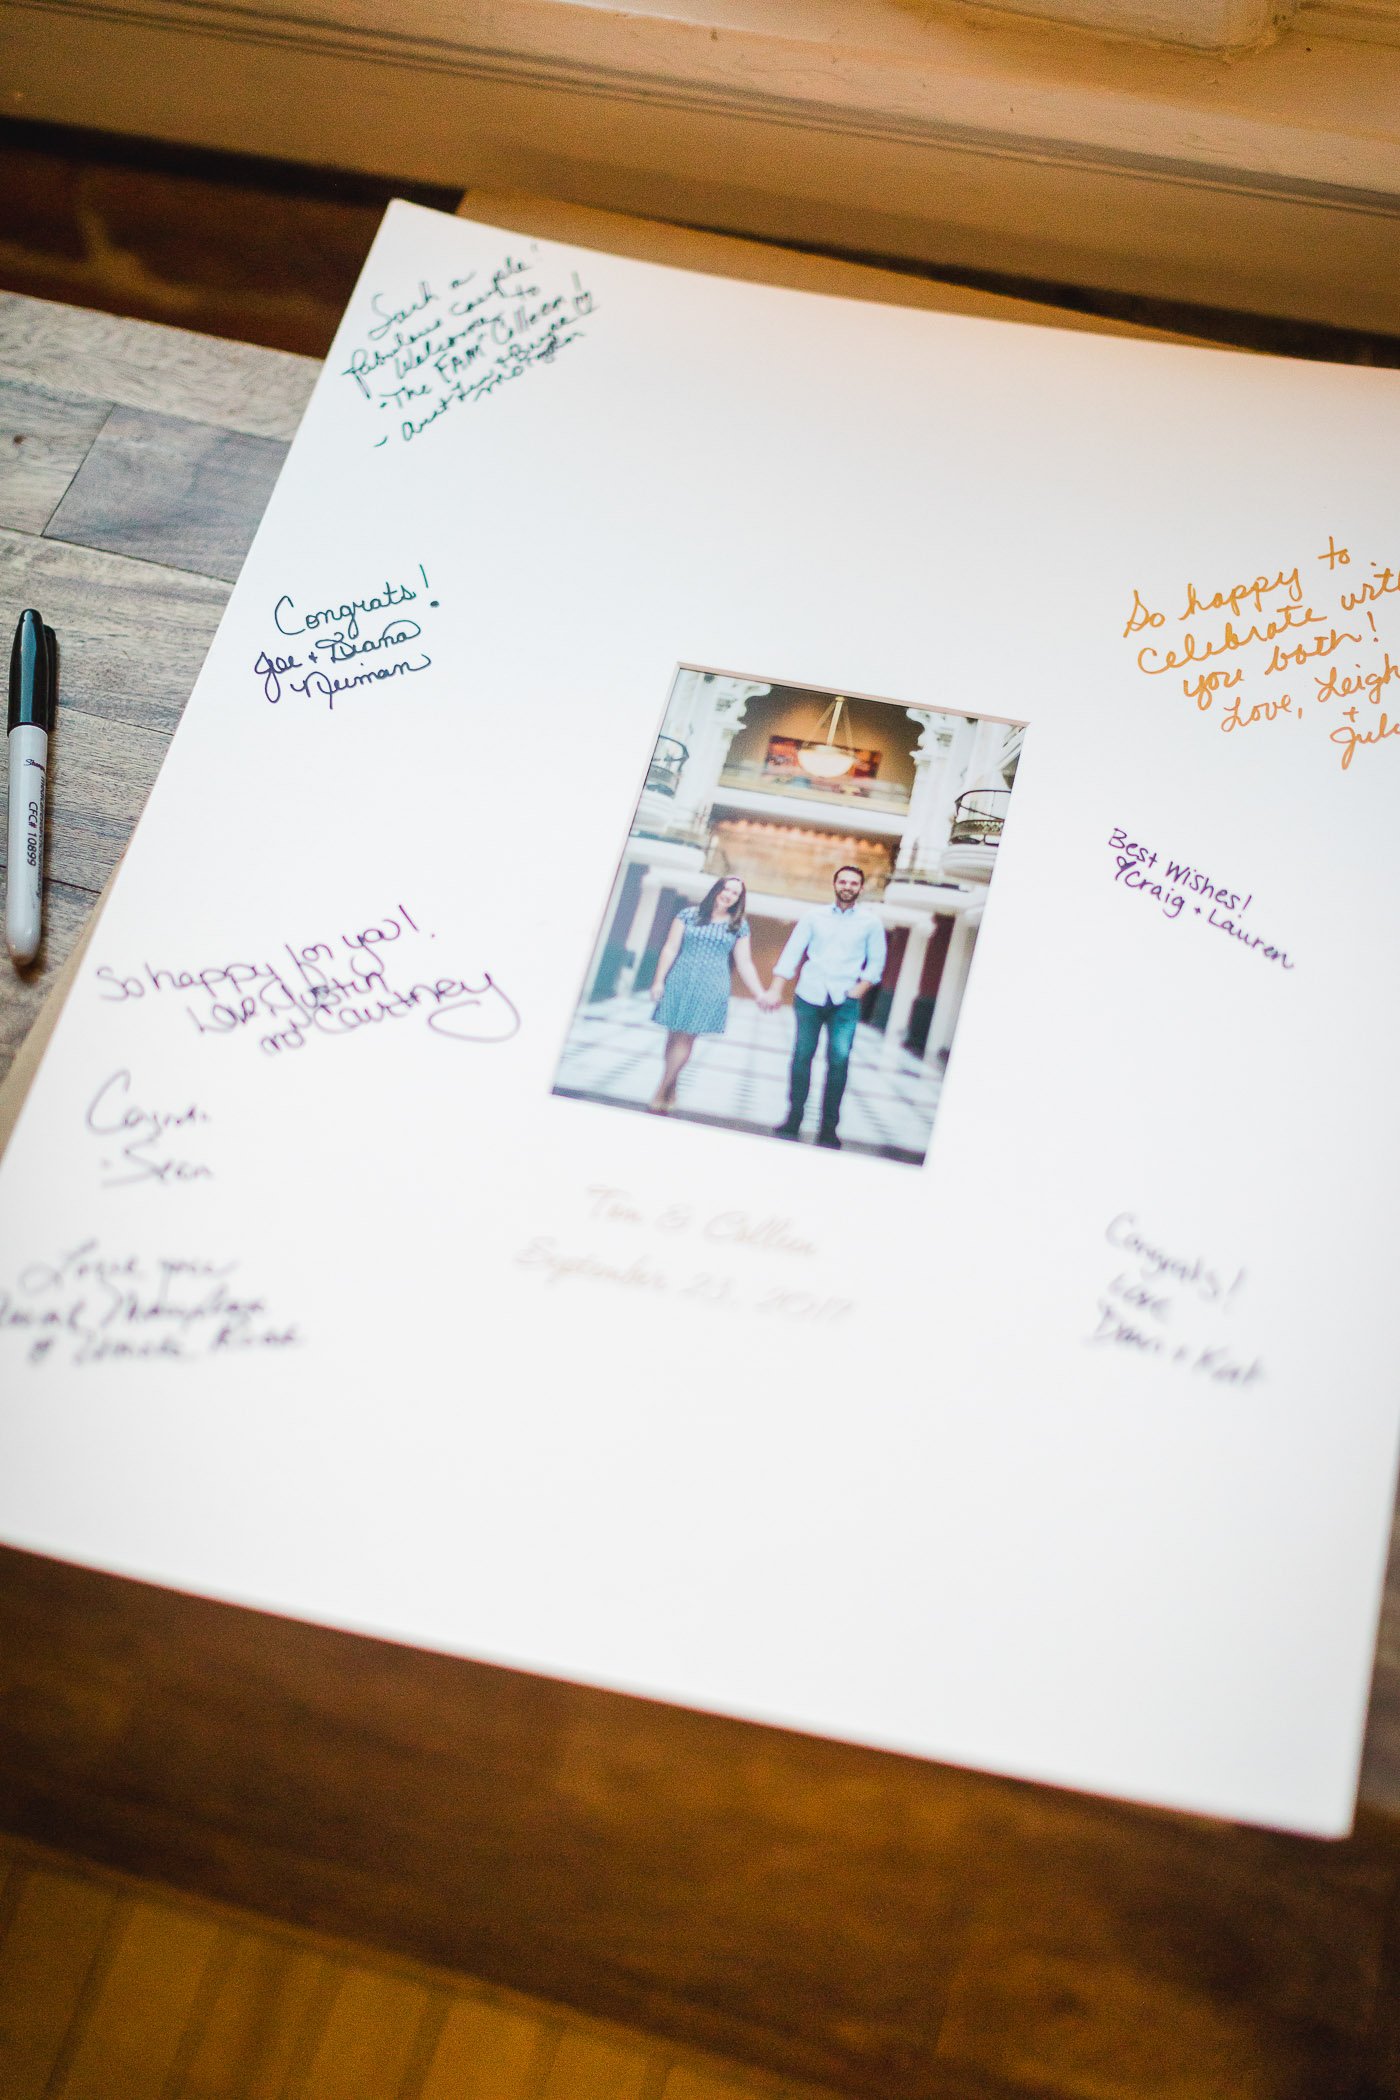 Such a
fabulous couple!
Welcome to
"The FAM" Colleen!
~ Aunt & Bryna
Morgan
Congrats!
Joe + Diana
Neiman
So happy to
celebrate with
you both!
Love, Leigh
+
Best Wishes!
Craig + Lauren
So happy for you!
Love, Justin
and Courtney
Sharpie
CFC# 10899
- Sean
Tom & Colleen
September 23, 2017
Love you
Congrats!
Love